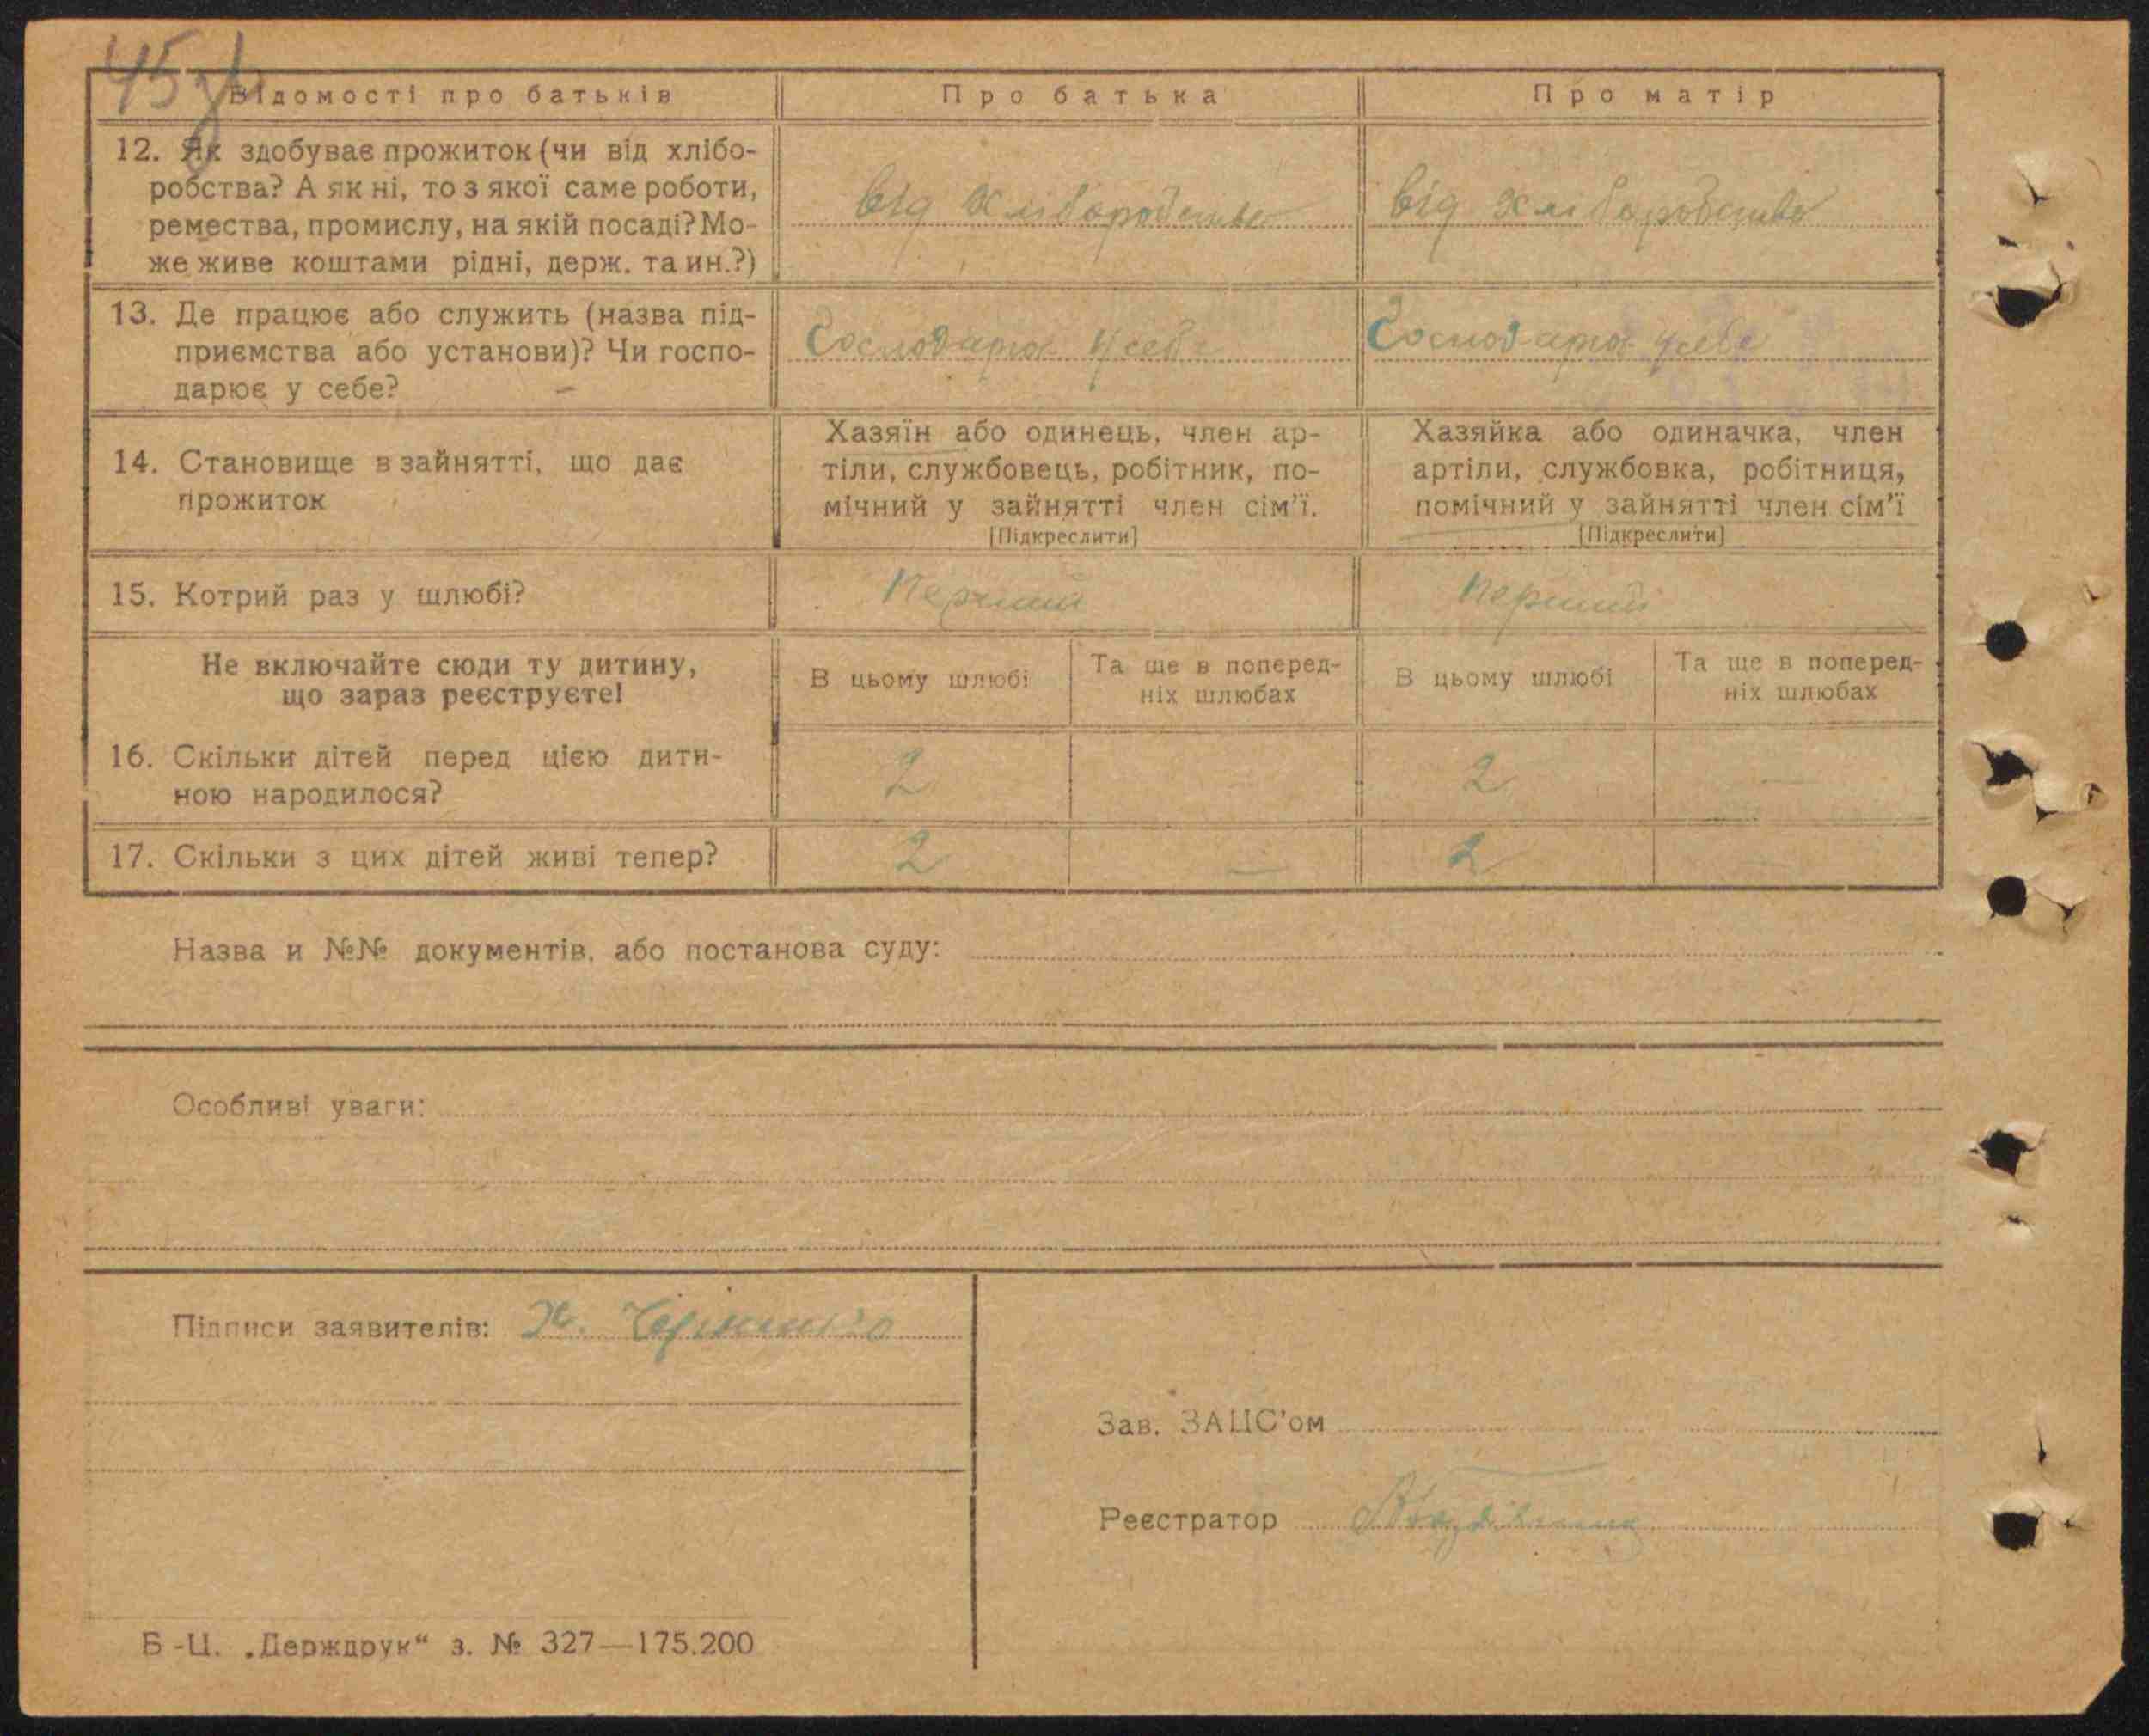 45 зв
Відомості про батьків
Про батька
Про матір
12. Як здобуває прожиток (чи від хлібо-
робства? А як ні, то з якої саме роботи,
ремества, промислу, на якій посаді? Мо-
же живе коштами рідні, держ. та ин.?)
від хліборобства
від хліборобства
13. Де працює або служить (назва під-
приємства або установи)? Чи госпо-
дарює у себе?
Господарює у себе
Господарює у себе
14. Становище в зайнятті, що дає
прожиток
Хазяїн або одинець, член ар-
тіли, службовець, робітник, по-
мічний у зайнятті член сім'ї.
[Підкреслити]
Хазяйка або одиначка, член
артіли, службовка, робітниця,
помічний у зайнятті член сім'ї
[Підкреслити]
15. Котрий раз у шлюбі?
Перший
Перший
Не включайте сюди ту дитину,
що зараз реєструєте!
В цьому шлюбі
Та ще в поперед-
ніх шлюбах
В цьому шлюбі
Та ще в поперед-
ніх шлюбах
16. Скільки дітей перед цією дити-
ною народилося?
2
2
17. Скільки з цих дітей живі тепер?
2
—
2
Назва и №№ документів, або постанова суду:
Особливі уваги:
Підписи заявителів:
Зав. ЗАЦС'ом
Реєстратор
Б-Ц. „Держдрук“ з. № 327—175.200